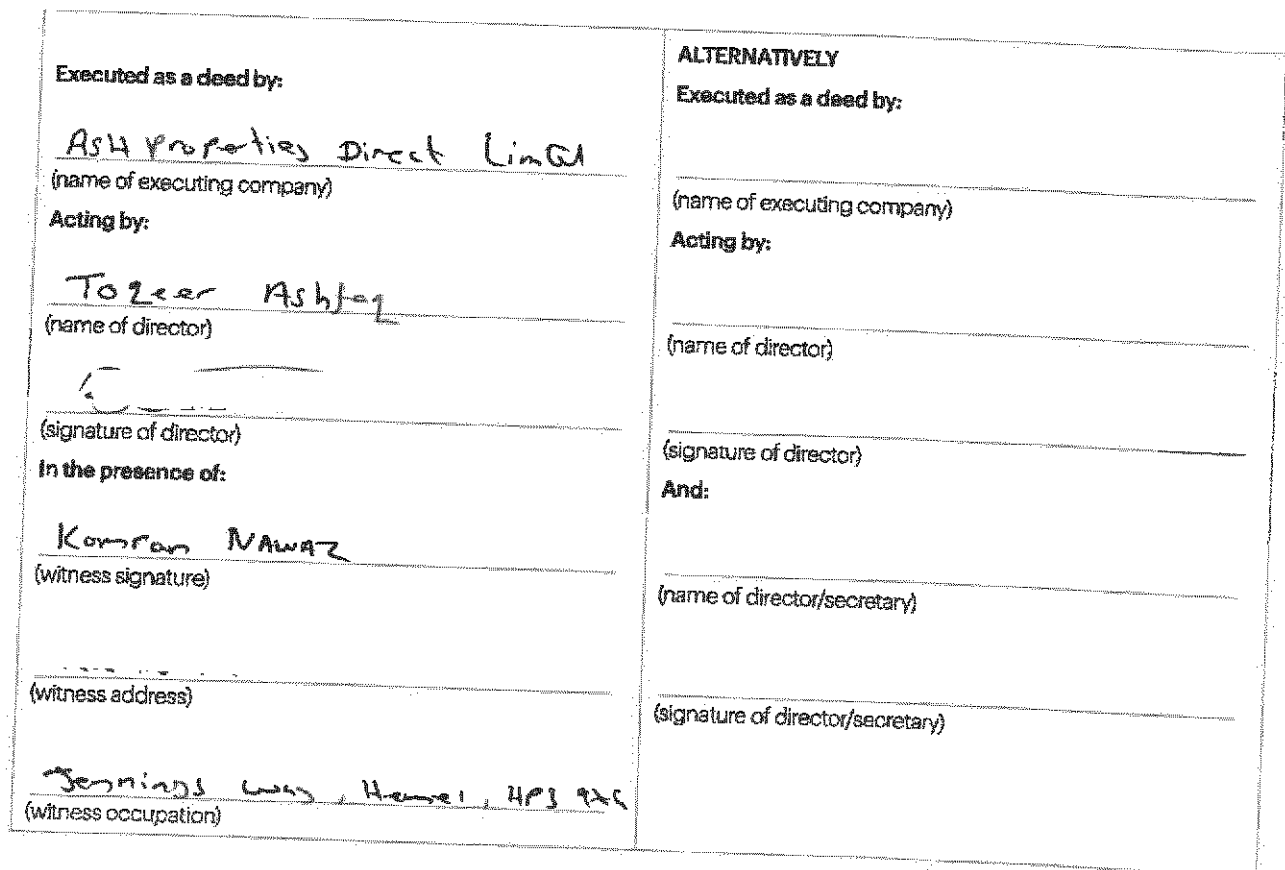 Executed as a deed by:
ASH Properties Direct
(name of executing company)
Acting by:
Toqeer Ashfaq
(name of director)
(signature of director)
In the presence of:
Kamran NAWAZ
(witness signature)
(witness address)
Jennings Way, Hemel, HP3
(witness occupation)
ALTERNATIVELY
Executed as a deed by:
(name of executing company)
Acting by:
(name of director)
(signature of director)
And:
(name of director/secretary)
(signature of director/secretary)